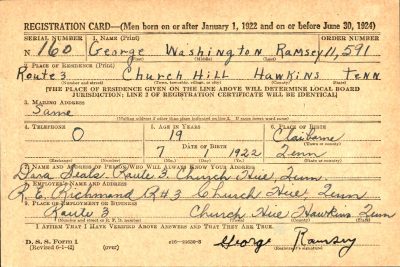 REGISTRATION CARD—(Men born on or after January 1, 1922 and on or before June 30, 1924)
SERIAL NUMBER 1. NAME (Print) ORDER NUMBER
N 160 George Washington Ramsey 11,591
2. PLACE OF RESIDENCE (Print)
Route 3 Church Hill Hawkins Tenn
(Number and street) (Town, township, village, or city) (County) (State)
[THE PLACE OF RESIDENCE GIVEN ON THE LINE ABOVE WILL DETERMINE LOCAL BOARD
JURISDICTION; LINE 2 OF REGISTRATION CERTIFICATE WILL BE IDENTICAL]
3. MAILING ADDRESS
Same
(Mailing address if other than place indicated on line 2. If same insert word same)
4. TELEPHONE 5. AGE IN YEARS 6. PLACE OF BIRTH
0 19 Claiborne
DATE OF BIRTH (Town or county)
7 1 1922 Tenn
(Exchange) (Number) (Mo.) (Day) (Yr.) (State or country)
7. NAME AND ADDRESS OF PERSON WHO WILL ALWAYS KNOW YOUR ADDRESS
Seals Route 3 Church Hill, Tenn.
8. EMPLOYER'S NAME AND ADDRESS
R. E. Richmond R#3 Church Hill, Tenn
9. PLACE OF EMPLOYMENT OR BUSINESS
Route 3 Church Hill Hawkins Tenn
(Number and street or R. F. D. number) (Town) (County) (State)
I AFFIRM THAT I HAVE VERIFIED ABOVE ANSWERS AND THAT THEY ARE TRUE.
D. S. S. Form 1
(Revised 6-1-42) (over) George Ramsey
(Registrant's signature)